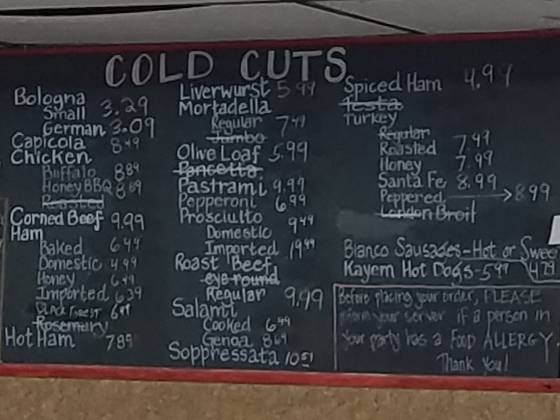 COLD CUTS
Bologna
Small 3.29
German 3.09
Capicola 8.49
Chicken
Buffalo 8.89
Honey BBQ 8.89
Roasted
Corned Beef 9.99
Ham
Baked 6.49
Domestic 4.99
Honey 6.49
Imported 6.39
Black Forest 6.99
Rosemary
Hot Ham 7.89
Liverwurst 5.99
Mortadella
Regular 7.49
Jumbo
Olive Loaf 5.99
Pancetta
Pastrami 9.99
Pepperoni 6.99
Prosciutto
Domestic 9.49
Imported 19.99
Roast Beef
eye round
Regular 9.99
Salami
Cooked 6.49
Genoa 8.69
Soppressata 10.51
Spiced Ham 4.99
Testa
Turkey
Regular
Roasted 7.49
Honey 7.99
Santa Fe 8.99
Peppered → 8.99
London Broil
Bianco Sausages-Hot or Sweet
Kayem Hot Dogs-5.99 4.79
Before placing your order, PLEASE
inform your server if a person in
your party has a FOOD ALLERGY
Thank you!